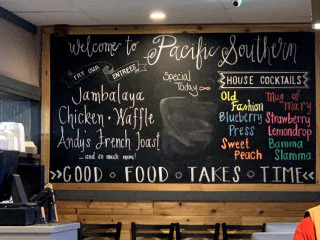 Welcome to Pacific Southern
TRY OUR ENTREES
Jambalaya
Chicken • Waffle
Andy's French Toast
... and so much more!
Special Today
HOUSE COCKTAILS
Old Fashion
Blueberry Press
Sweet Peach
Mug of mary
Strawberry Lemondrop
Bamma Slamma
GOOD • FOOD • TAKES • TIME